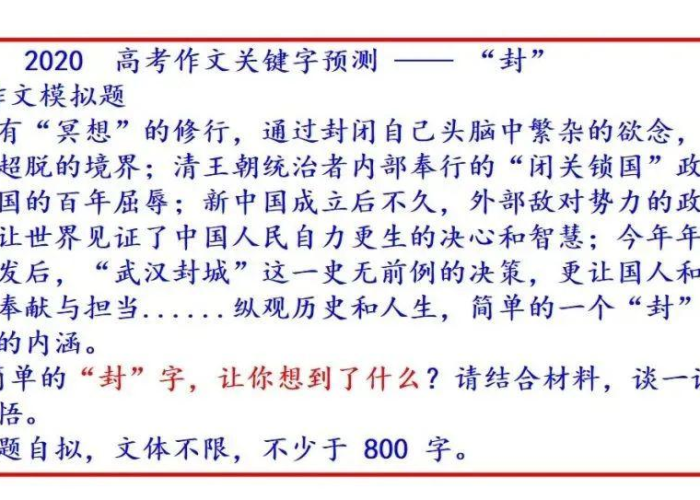 2020 高考作文关键字预测 —— “封”
作文模拟题
有“冥想”的修行，通过封闭自己头脑中繁杂的欲念，
超脱的境界；清王朝统治者内部奉行的“闭关锁国”政
国的百年屈辱；新中国成立后不久，外部敌对势力的政
让世界见证了中国人民自力更生的决心和智慧；今年年
发后，“武汉封城”这一史无前例的决策，更让国人和
奉献与担当......纵观历史和人生，简单的一个“封”
的内涵。
简单的“封”字，让你想到了什么？请结合材料，谈一谈
悟。
题自拟，文体不限，不少于 800 字。